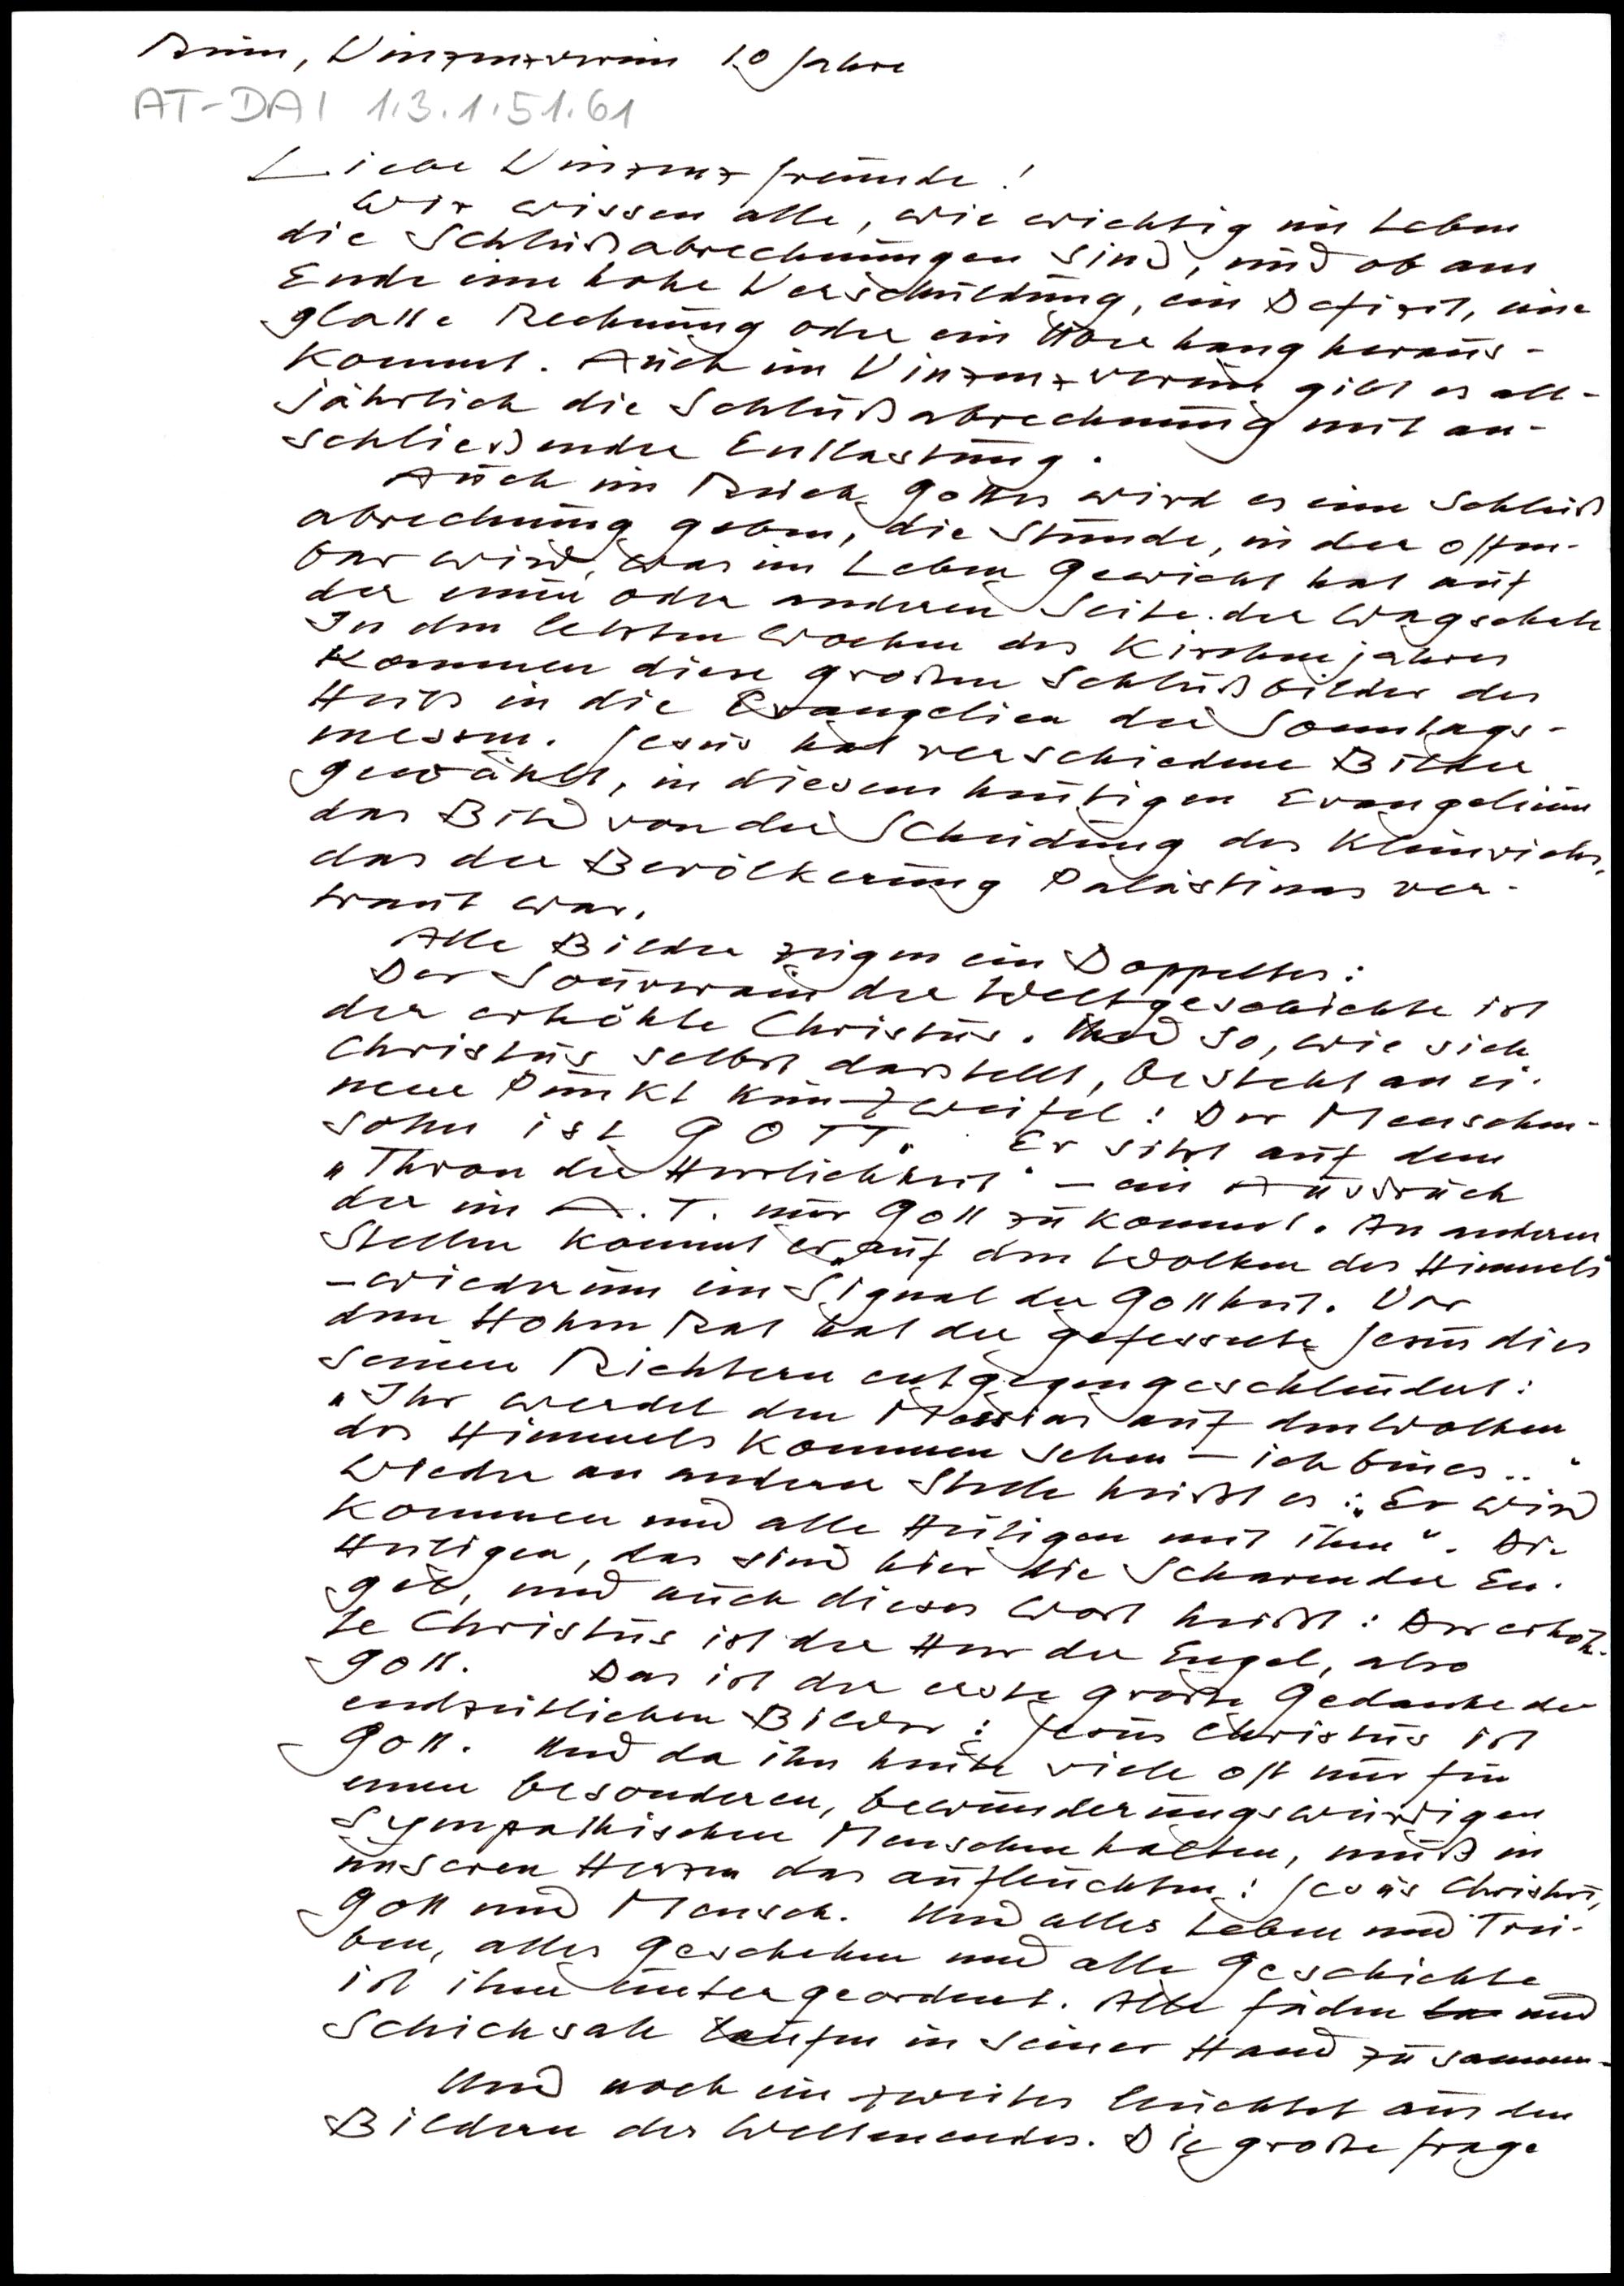 Vinzenzverein 10 Jahre
AT-DAI 1.3.1.51.61
Liebe Vinzenzfreunde!
Wir wissen alle, wie wichtig im Leben
die Schlußabrechnungen sind, und ob am
Ende eine hohe Verschuldung, ein Defizit, eine
glatte Rechnung oder ein Überhang heraus-
kommt. Auch im Vinzenzverein gibt es all-
jährlich die Schlußabrechnung mit an-
schließender Entlastung.
Auch im Reich Gottes wird es eine Schluß
abrechnung geben, die Stunde, in der offen-
bar wird, was im Leben Gewicht hat auf
der einen oder anderen Seite der Wagschale
In den letzten Wochen des Kirchenjahres
kommen diese großen Schlußbilder des
Heils in die Evangelien der Sonntags-
messen. Jesus hat verschiedene Bilder
gewählt, in diesem heutigen Evangelium
das Bild von der Scheidung des Kleinviehs,
das der Bevölkerung Palästinas ver-
traut war.
Alle Bilder zeigen ein Doppeltes:
Der Souverain der Weltgeschichte ist
der erhöhte Christus. Und so, wie sich
Christus selbst darstellt, besteht an ei-
nem Punkt kein Zweifel: Der Menschen-
sohn ist GOTT. Er sitzt auf dem
"Thron der Herrlichkeit" - ein Ausdruck
der im A.T. nur Gott zukommt. An anderen
Stellen kommt er "auf den Wolken des Himmels"
- wiederum ein Signal der Gottheit. Vor
dem Hohen Rat hat der gefesselte Jesus dies
seinen Richtern entgegengeschleudert:
"Ihr werdet den Messias auf den Wolken
des Himmels kommen sehen - ich bin es .."
Wieder an anderer Stelle heißt es: "Er wird
kommen und alle Heiligen mit ihm". Die
Heiligen, das sind hier die Scharen der En-
gel, und auch dieses Wort heißt: Der erhöh-
te Christus ist der Herr der Engel, also
Gott. Das ist der erste große Gedanke der
endzeitlichen Bilder: Jesus Christus ist
Gott. Und da ihn heute viele oft nur für
einen besonderen, bewunderungswürdigen
sympathischen Menschen halten, muß in
unseren Herzen das aufleuchten: Jesus Christus,
Gott und Mensch. Und alles Leben und Trei-
ben, alles Geschehen und alle Geschichte
ist ihm untergeordnet. Alle Fäden und
Schicksale laufen in seiner Hand zusammen-
Und noch ein zweites leuchtet aus den
Bildern des Weltenendes. Die große Frage